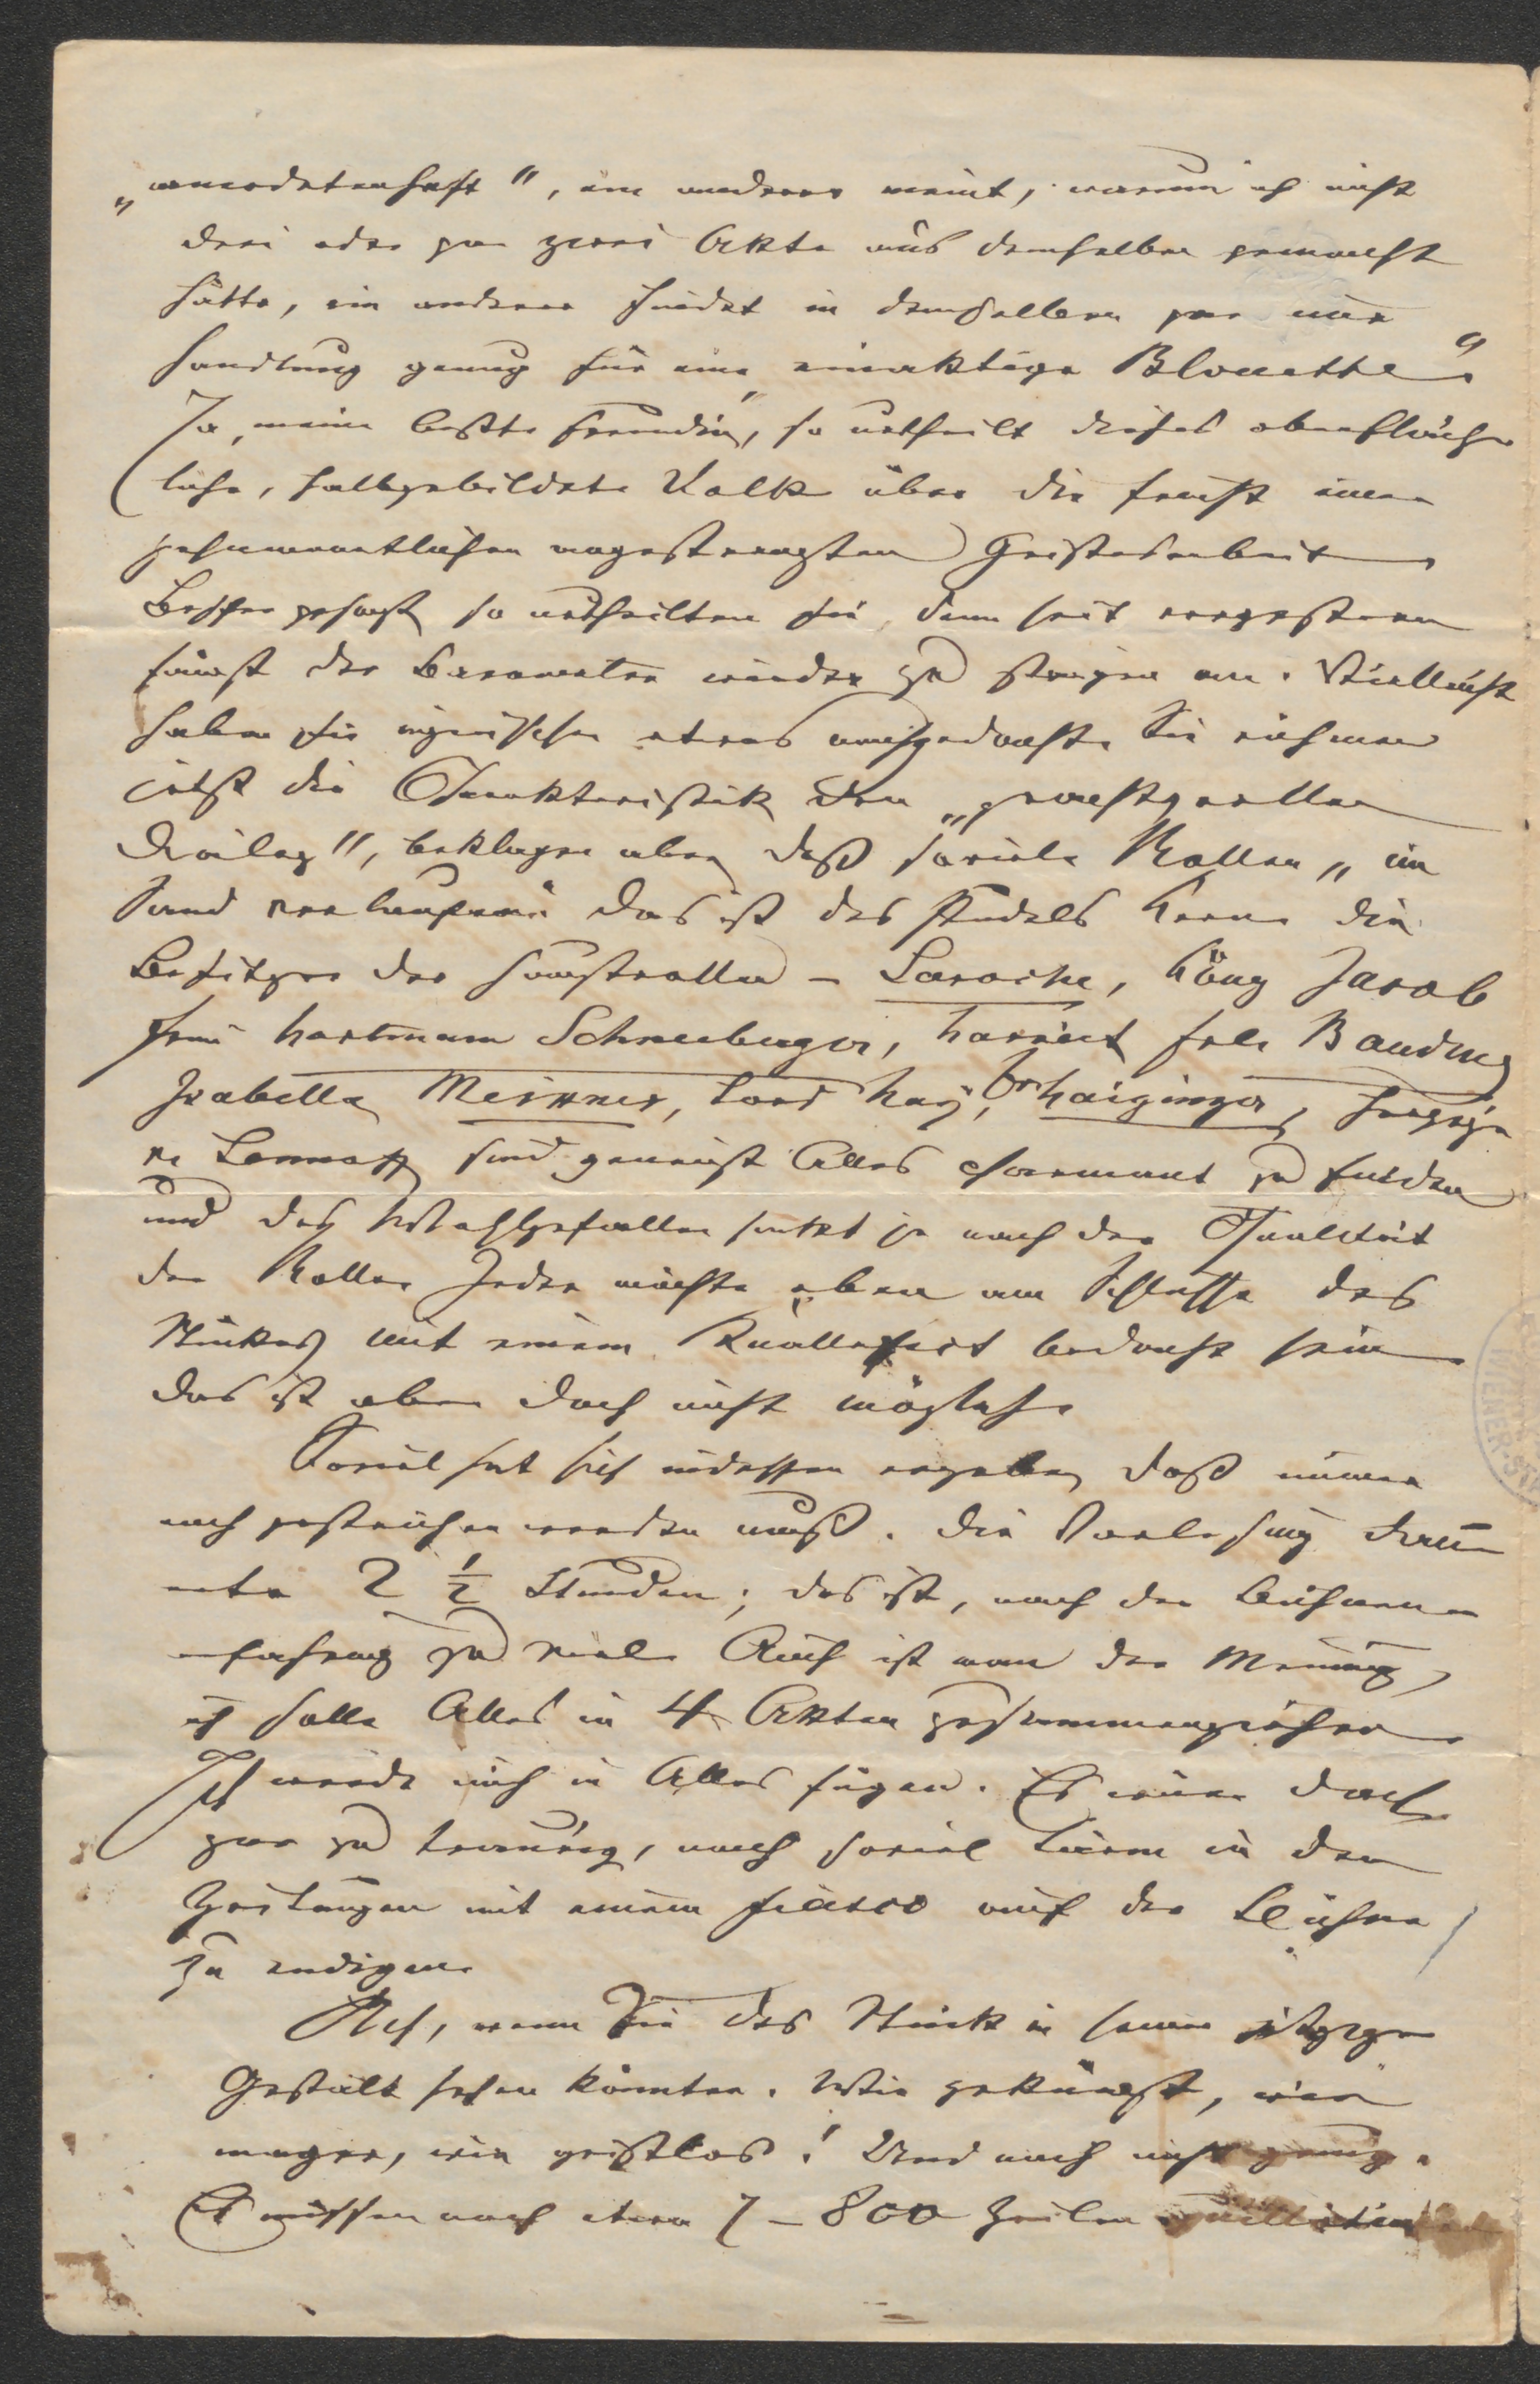 „anecdotenhaft", ein anderer meint, warum ich nicht
drei oder gar zwei Akte aus demselben gemacht
hätte, ein anderer findet in demselben gar nur
Handlung genug für eine „einaktige Blouette".
Ja, meine beste Freundin, so urtheilt dieses oberfläch-
liche, halbgebildete Volk über die Frucht einer
zehnmonatlichen angestrengten Geistesarbeit.
Besser gesagt, so urtheilten sie, denn seit vorgestern
fängt der Barometer wieder zu steigen an. Vielleicht
haben sie inzwischen etwas nachgedacht. Sie rühmen
jetzt die Charakteristik, den „prachtvollen
Dialog", beklagen aber, daß soviele Rollen „im
Sand verlaufen". Das ist des Pudels Kern. Die
Besitzer der Hauptrollen – Laroche, König Jacob
Frau Hartmann Schneeberger, Harriet, Frl. Baudius
Isabella, Meixner, Lord Hay, Fr. Haizinger, Herzogin
v. Lennox, sind geneigt Alles charmant zu finden
und das Wohlgefallen sinkt je nach der Qualität
der Rollen. Jeder möchte eben am Schlusse des
Stückes mit einem Knalleffect bedacht sein
das ist aber doch nicht möglich.
Soviel hat sich indessen ergeben, daß immer
noch gestrichen werden muß. Die Vorlesung dau-
erte 2 1/2 Stunden; das ist, nach der Bühnen-
erfahrung zu viel. Auch ist man der Meinung,
ich solle Alles in 4 Akten zusammenziehen.
Ich werde mich in Alles fügen. Es wäre doch
gar zu traurig, nach soviel Lärm in den
Zeitungen mit einem Fiasco auf der Bühne
zu endigen.
Ach, wenn Sie das Stück in seiner jetzigen
Gestalt sehen könnten. Wie gekürzt, wie
mager, wie geistlos! Und noch nicht genug.
Es müssen noch etwa 7 – 800 Zeilen